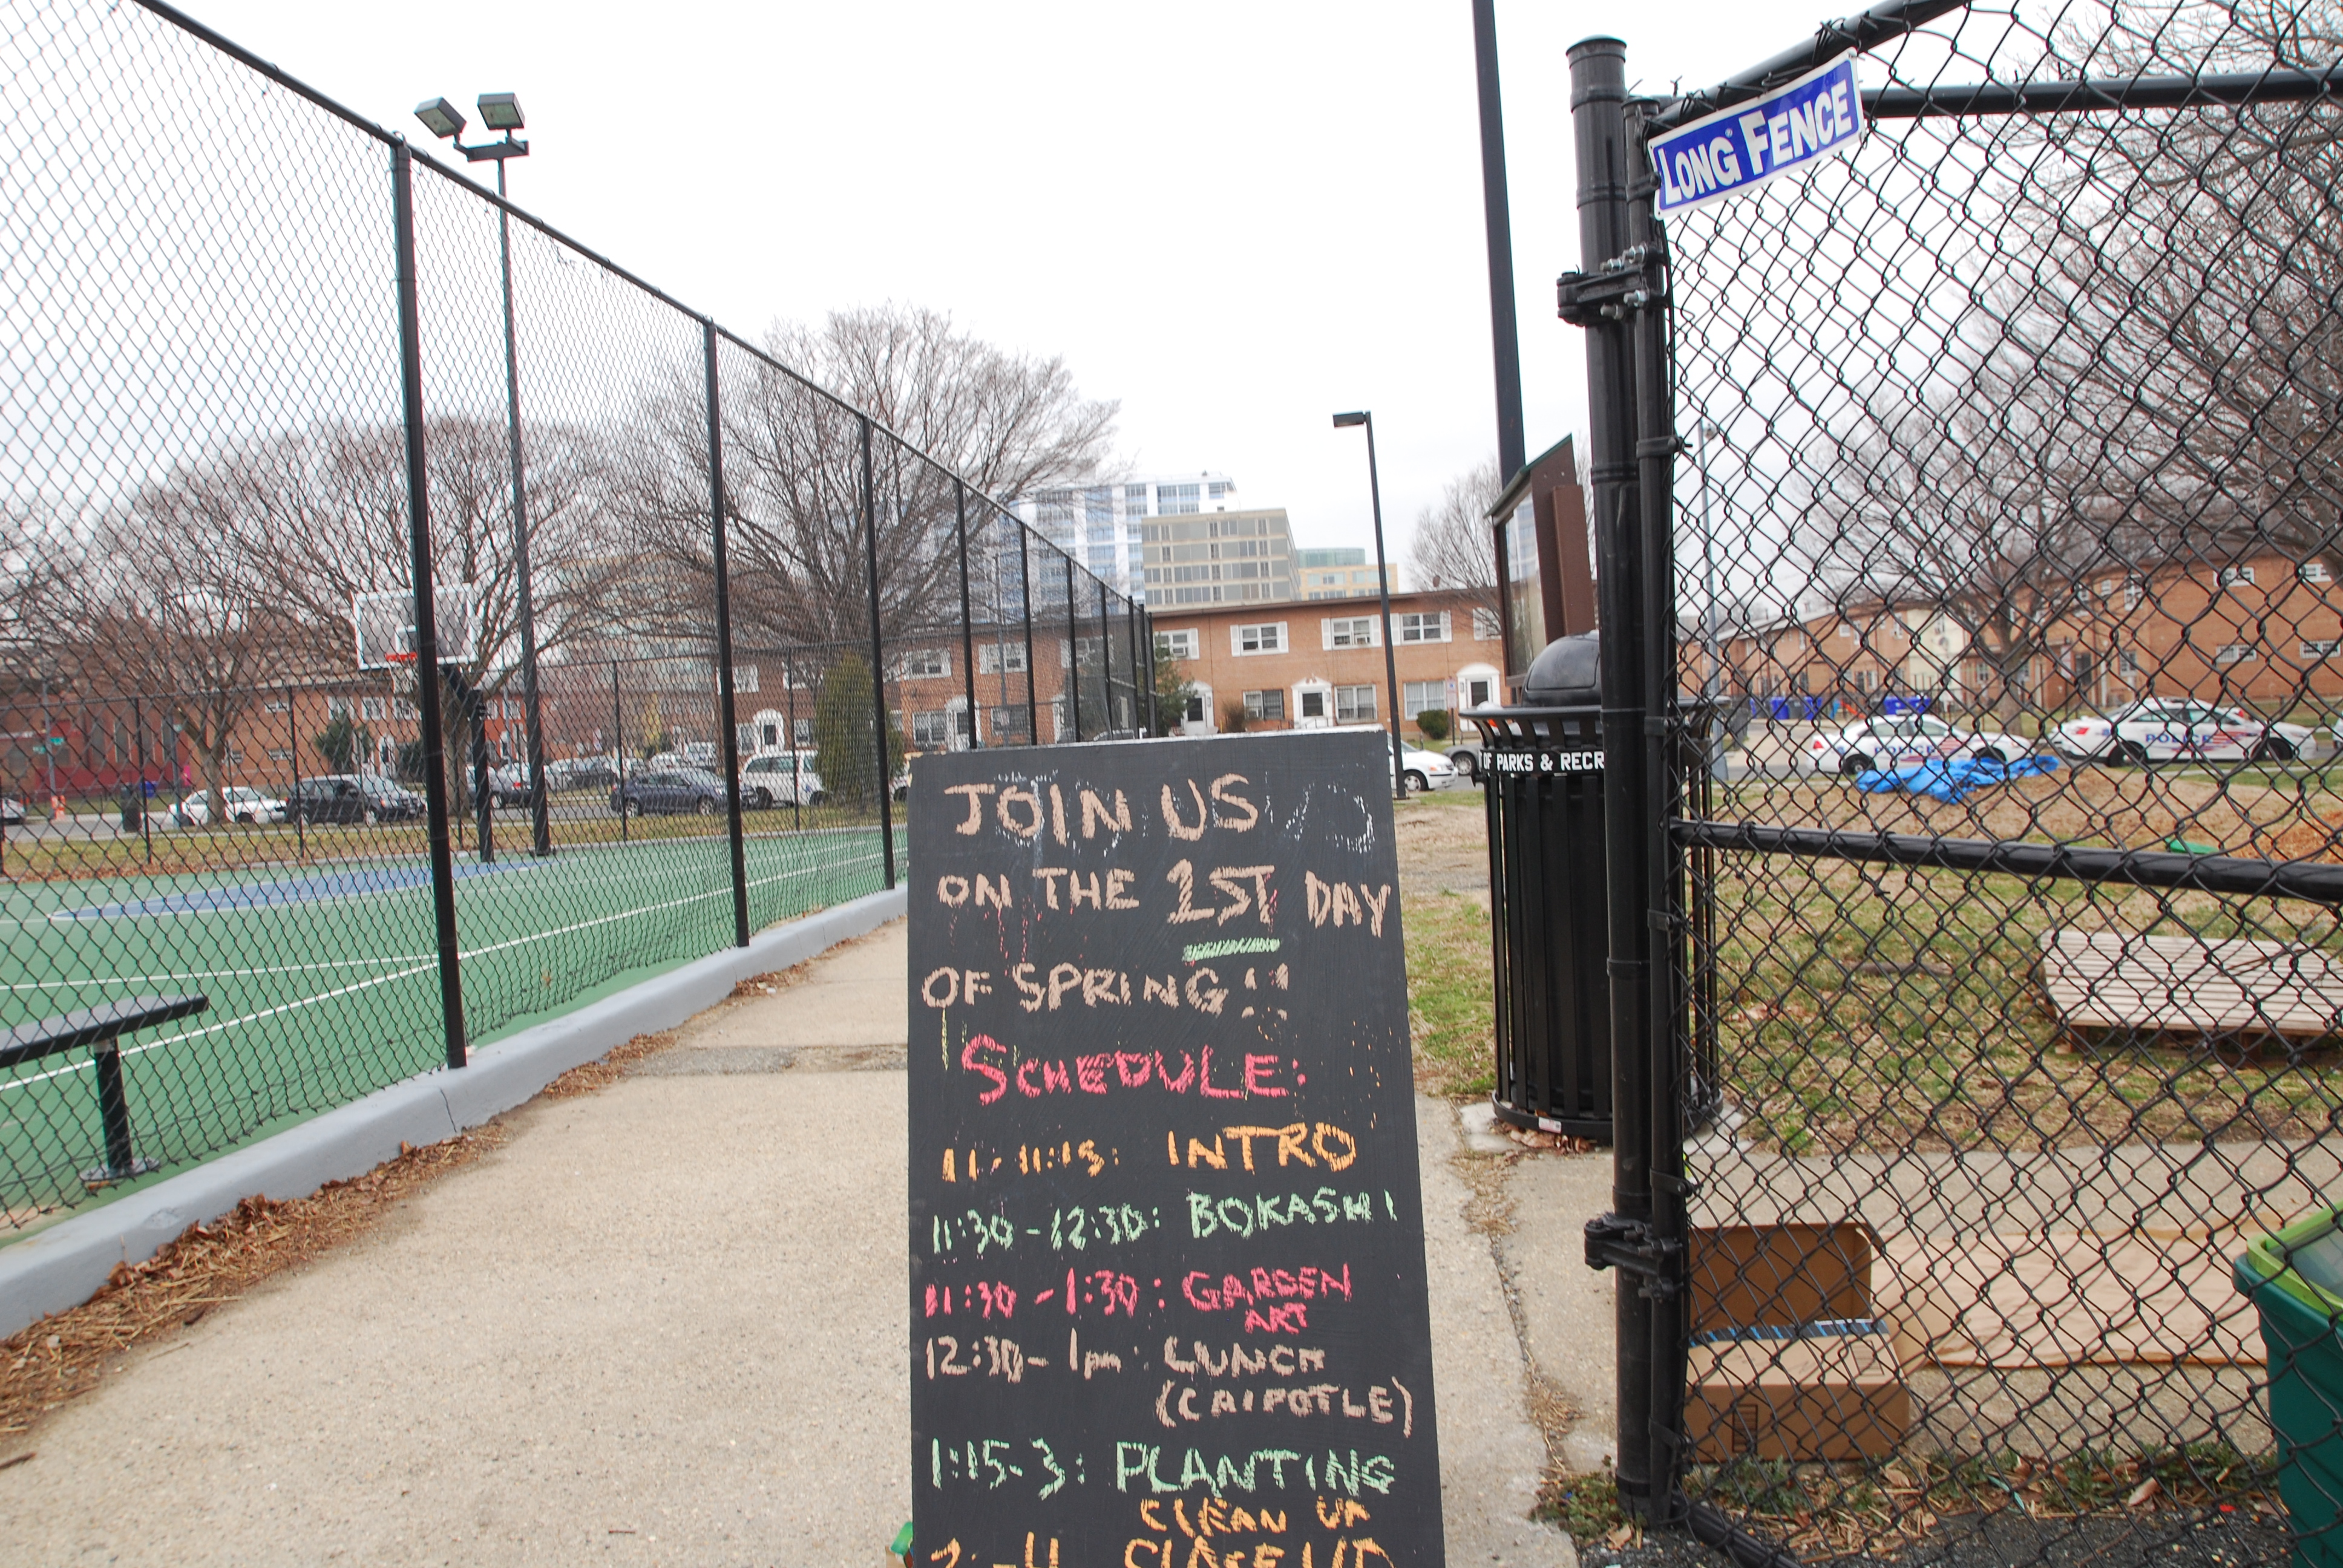 LONG FENCE
OF PARKS & RECR
POLICE
POLICE
JOIN US
ON THE 1ST DAY
OF SPRING!!
SCHEDULE:
11-11:15: INTRO
11:30-12:30: BOKASHI
11:30-1:30: GARDEN
ART
12:30-1pm: LUNCH
(CHIPOTLE)
1:15-3: PLANTING
CLEAN UP
-4 CLOSE UP